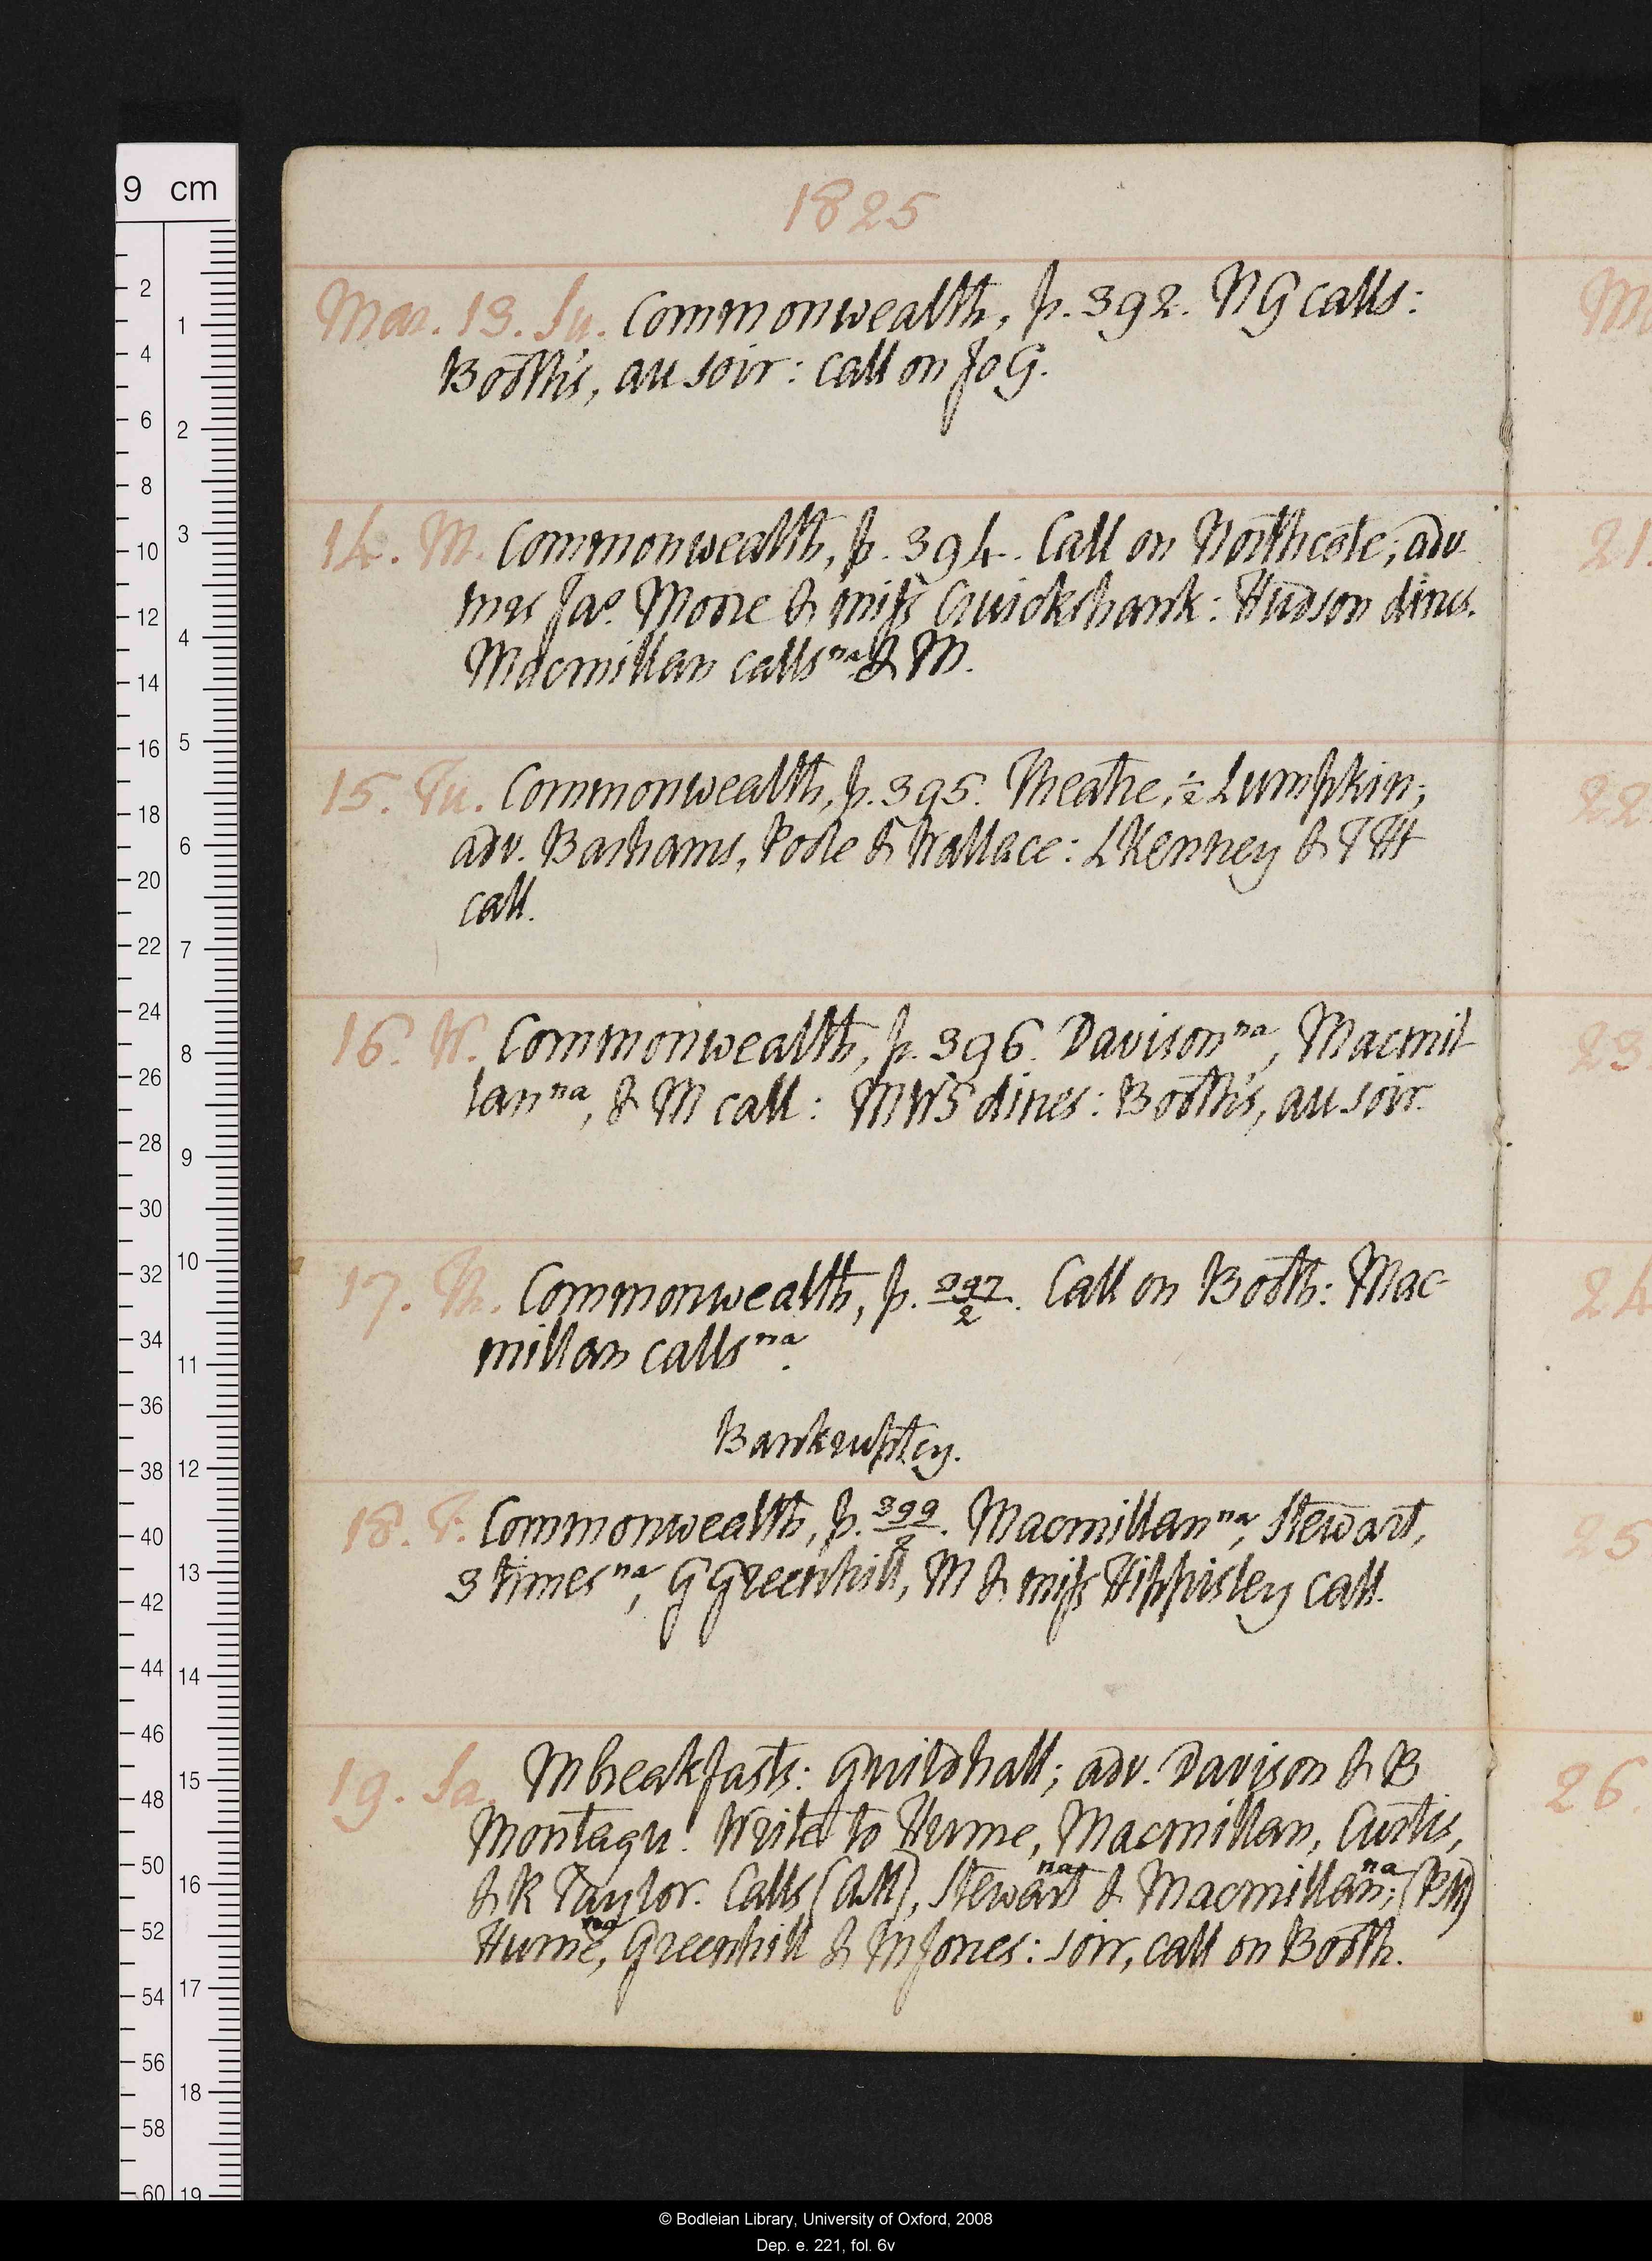 1825
Mar. 13. Su. Commonwealth, p. 392. NG calls:
Booth's, au soir: call on Jo G.
14. M. Commonwealth, p. 394. Call on Northcote; adv.
mrs Jas Moore & miss Cruickshank: Hudson dines.
Macmillan calls na & M.
15. Tu. Commonwealth, p. 395. Theatre, ½ Lumpkin;
adv. Barhams, Poole & Wallace: L Kenney & THt
call.
16. W. Commonwealth, p. 396. Davison na, Macmil-
lan na, & M call: MWS dines: Booth's, au soir.
17. Th. Commonwealth, p. 397/2. Call on Booth: Mac-
millan calls na.
Bankruptcy.
18. F. Commonwealth, p. 399/2. Macmillan na, Stewart,
3 times na, G Greenhill, M & miss Hippisley call.
19. Sa. M breakfasts: Guildhall; adv. Davison & B
Montagu. Write to Hume, Macmillan, Curtis,
& R Taylor. Calls (AM), Stewart na & Macmillan na; (PM)
Hume na, Greenhill & M Jones: soir, call on Booth.
M
21.
22
23
24
25
26.
9 cm
2 4 6 8 10 12 14 16 18 20 22 24 26 28 30 32 34 36 38 40 42 44 46 48 50 52 54 56 58 60
1 2 3 4 5 6 7 8 9 10 11 12 13 14 15 16 17 18 19
© Bodleian Library, University of Oxford, 2008
Dep. e. 221, fol. 6v